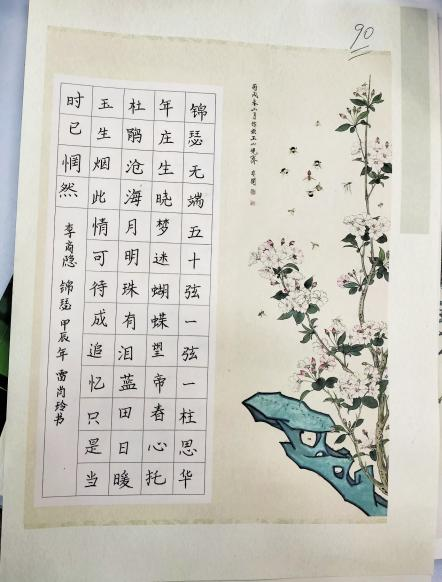 90
锦瑟无端五十弦一弦一柱思华
年庄生晓梦迷蝴蝶望帝春心托
杜鹃沧海月明珠有泪蓝田日暖
玉生烟此情可待成追忆只是当
时已惘然 李商隐 锦瑟 甲辰年 雷尚玲书